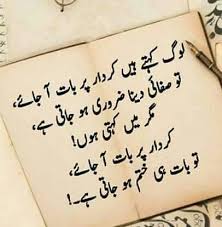 لوگ کہتے ہیں کردار پر بات آ جائے،
تو صفائی دینا ضروری ہو جاتی ہے،
مگر میں کہتی ہوں!
کردار پر بات آ جائے،
تو بات ہی ختم ہو جاتی ہے۔!